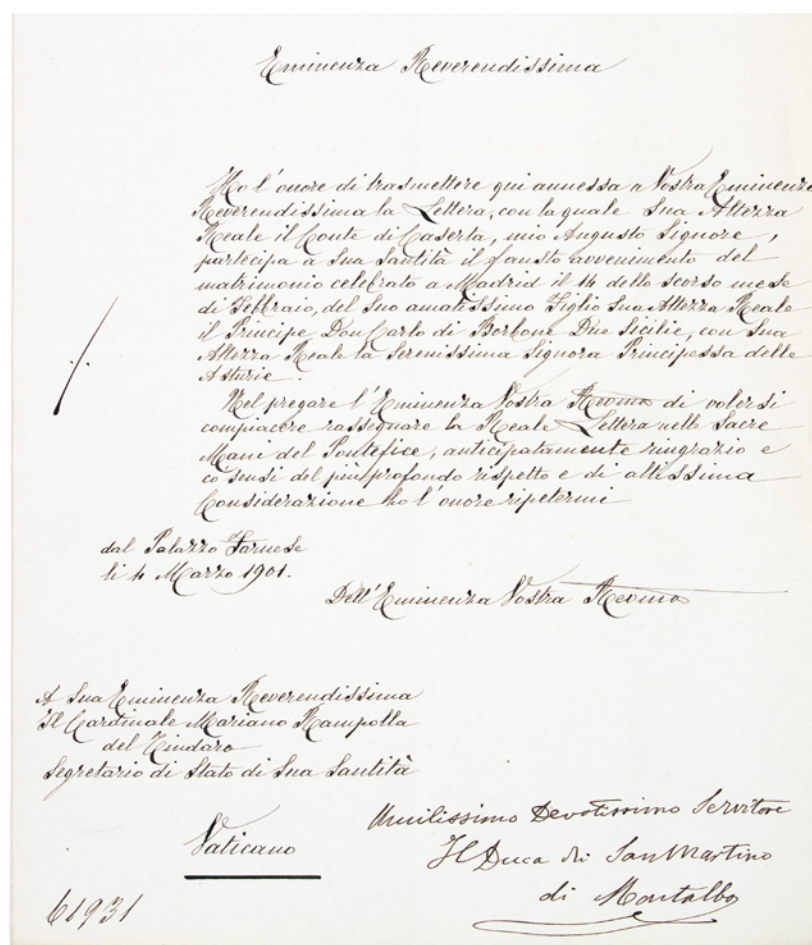 Eminenza Reverendissima
Ho l'onore di trasmettere qui annessa a Vostra Eminenza
Reverendissima la Lettera, con la quale Sua Altezza
Reale il Conte di Caserta, mio Augusto Signore,
partecipa a Sua Santità il fausto avvenimento del
matrimonio celebrato a Madrid il 14 dello scorso mese
di Febbraio, del Suo amatissimo Figlio Sua Altezza Reale
il Principe Don Carlo di Borbone Due Sicilie, con Sua
Altezza Reale la Serenissima Signora Principessa delle
Asturie.
Nel pregare l'Eminenza Vostra Revma di volersi
compiacere rassegnare la Reale Lettera nelle Sacre
Mani del Pontefice, anticipatamente ringrazio e
co' sensi del più profondo rispetto e di altissima
Considerazione ho l'onore ripetermi
dal Palazzo Farnese
li 4 Marzo 1901.
Dell'Eminenza Vostra Revma
A Sua Eminenza Reverendissima
Il Cardinale Mariano Rampolla
del Tindaro
Segretario di Stato di Sua Santità
Vaticano
Umilissimo Devotissimo Servitore
Il Duca di San Martino
di Montalbo
61931